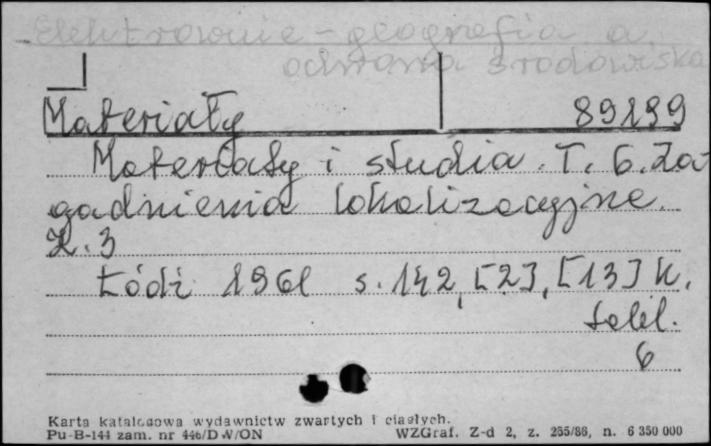 Elektrownie - geografia a
ochrona środowiska
Materiały 89199
Materiały i studia. T. 6. Za-
gadnienia lokalizacyjne.
Z. 3
Łódź 1961 s. 142, [2], [13] k.
tabl.
6
Karta katalogowa wydawnictw zwartych i ciągłych.
Pu-B-144 zam. nr 446/DW/ON WZGraf. Z-d 2, z. 255/86, n. 6 350 000